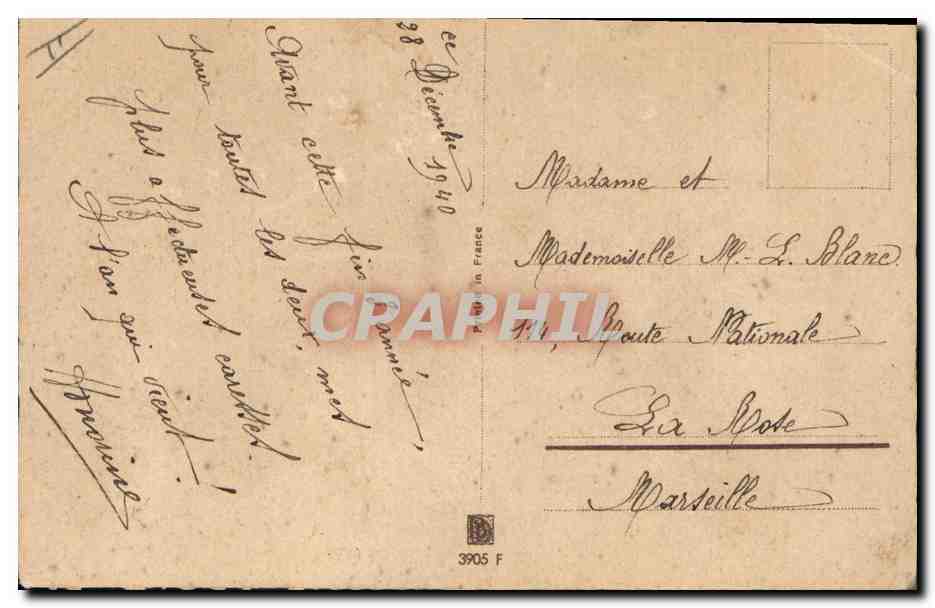 ce
28 Décembre 1940
Avant cette fin d'année,
pour toutes les deux, mes
plus affectueuses caresses.
A l'an qui vient!
Honorine
Printed in France
Madame et
Mademoiselle M.-L. Blanc
114, Route Nationale
La Rose
Marseille
3905 F
CRAPHIL